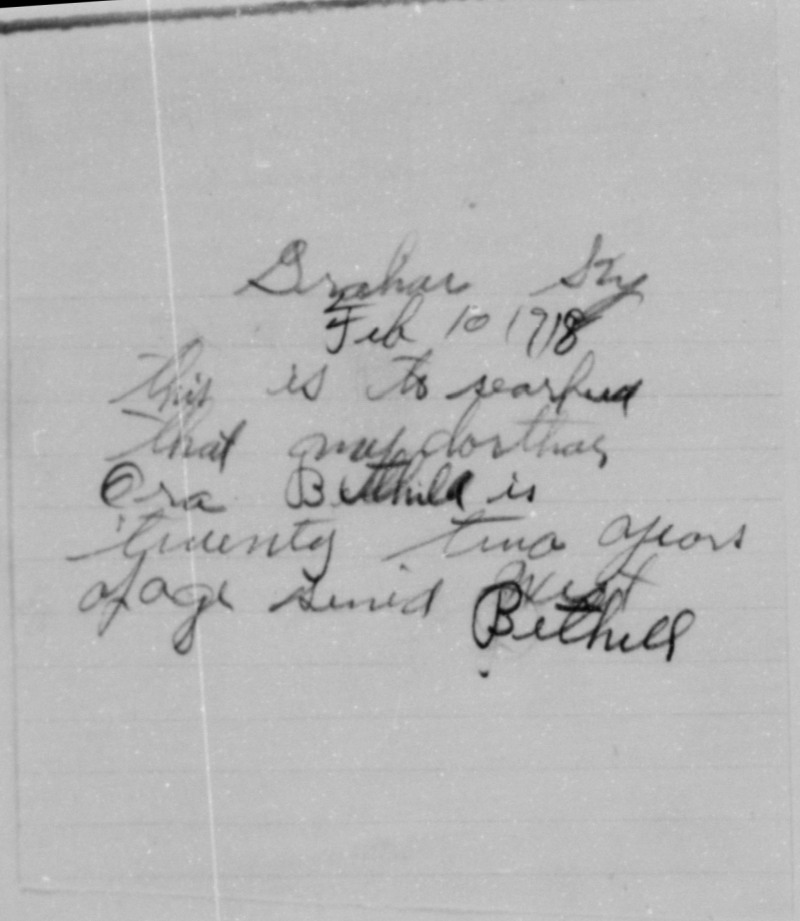 Grahar Ky
Feb 10 1918
this is to searfied
that my dorthar
Ora Bethild is
twenty two years
of age sined West
Bethell